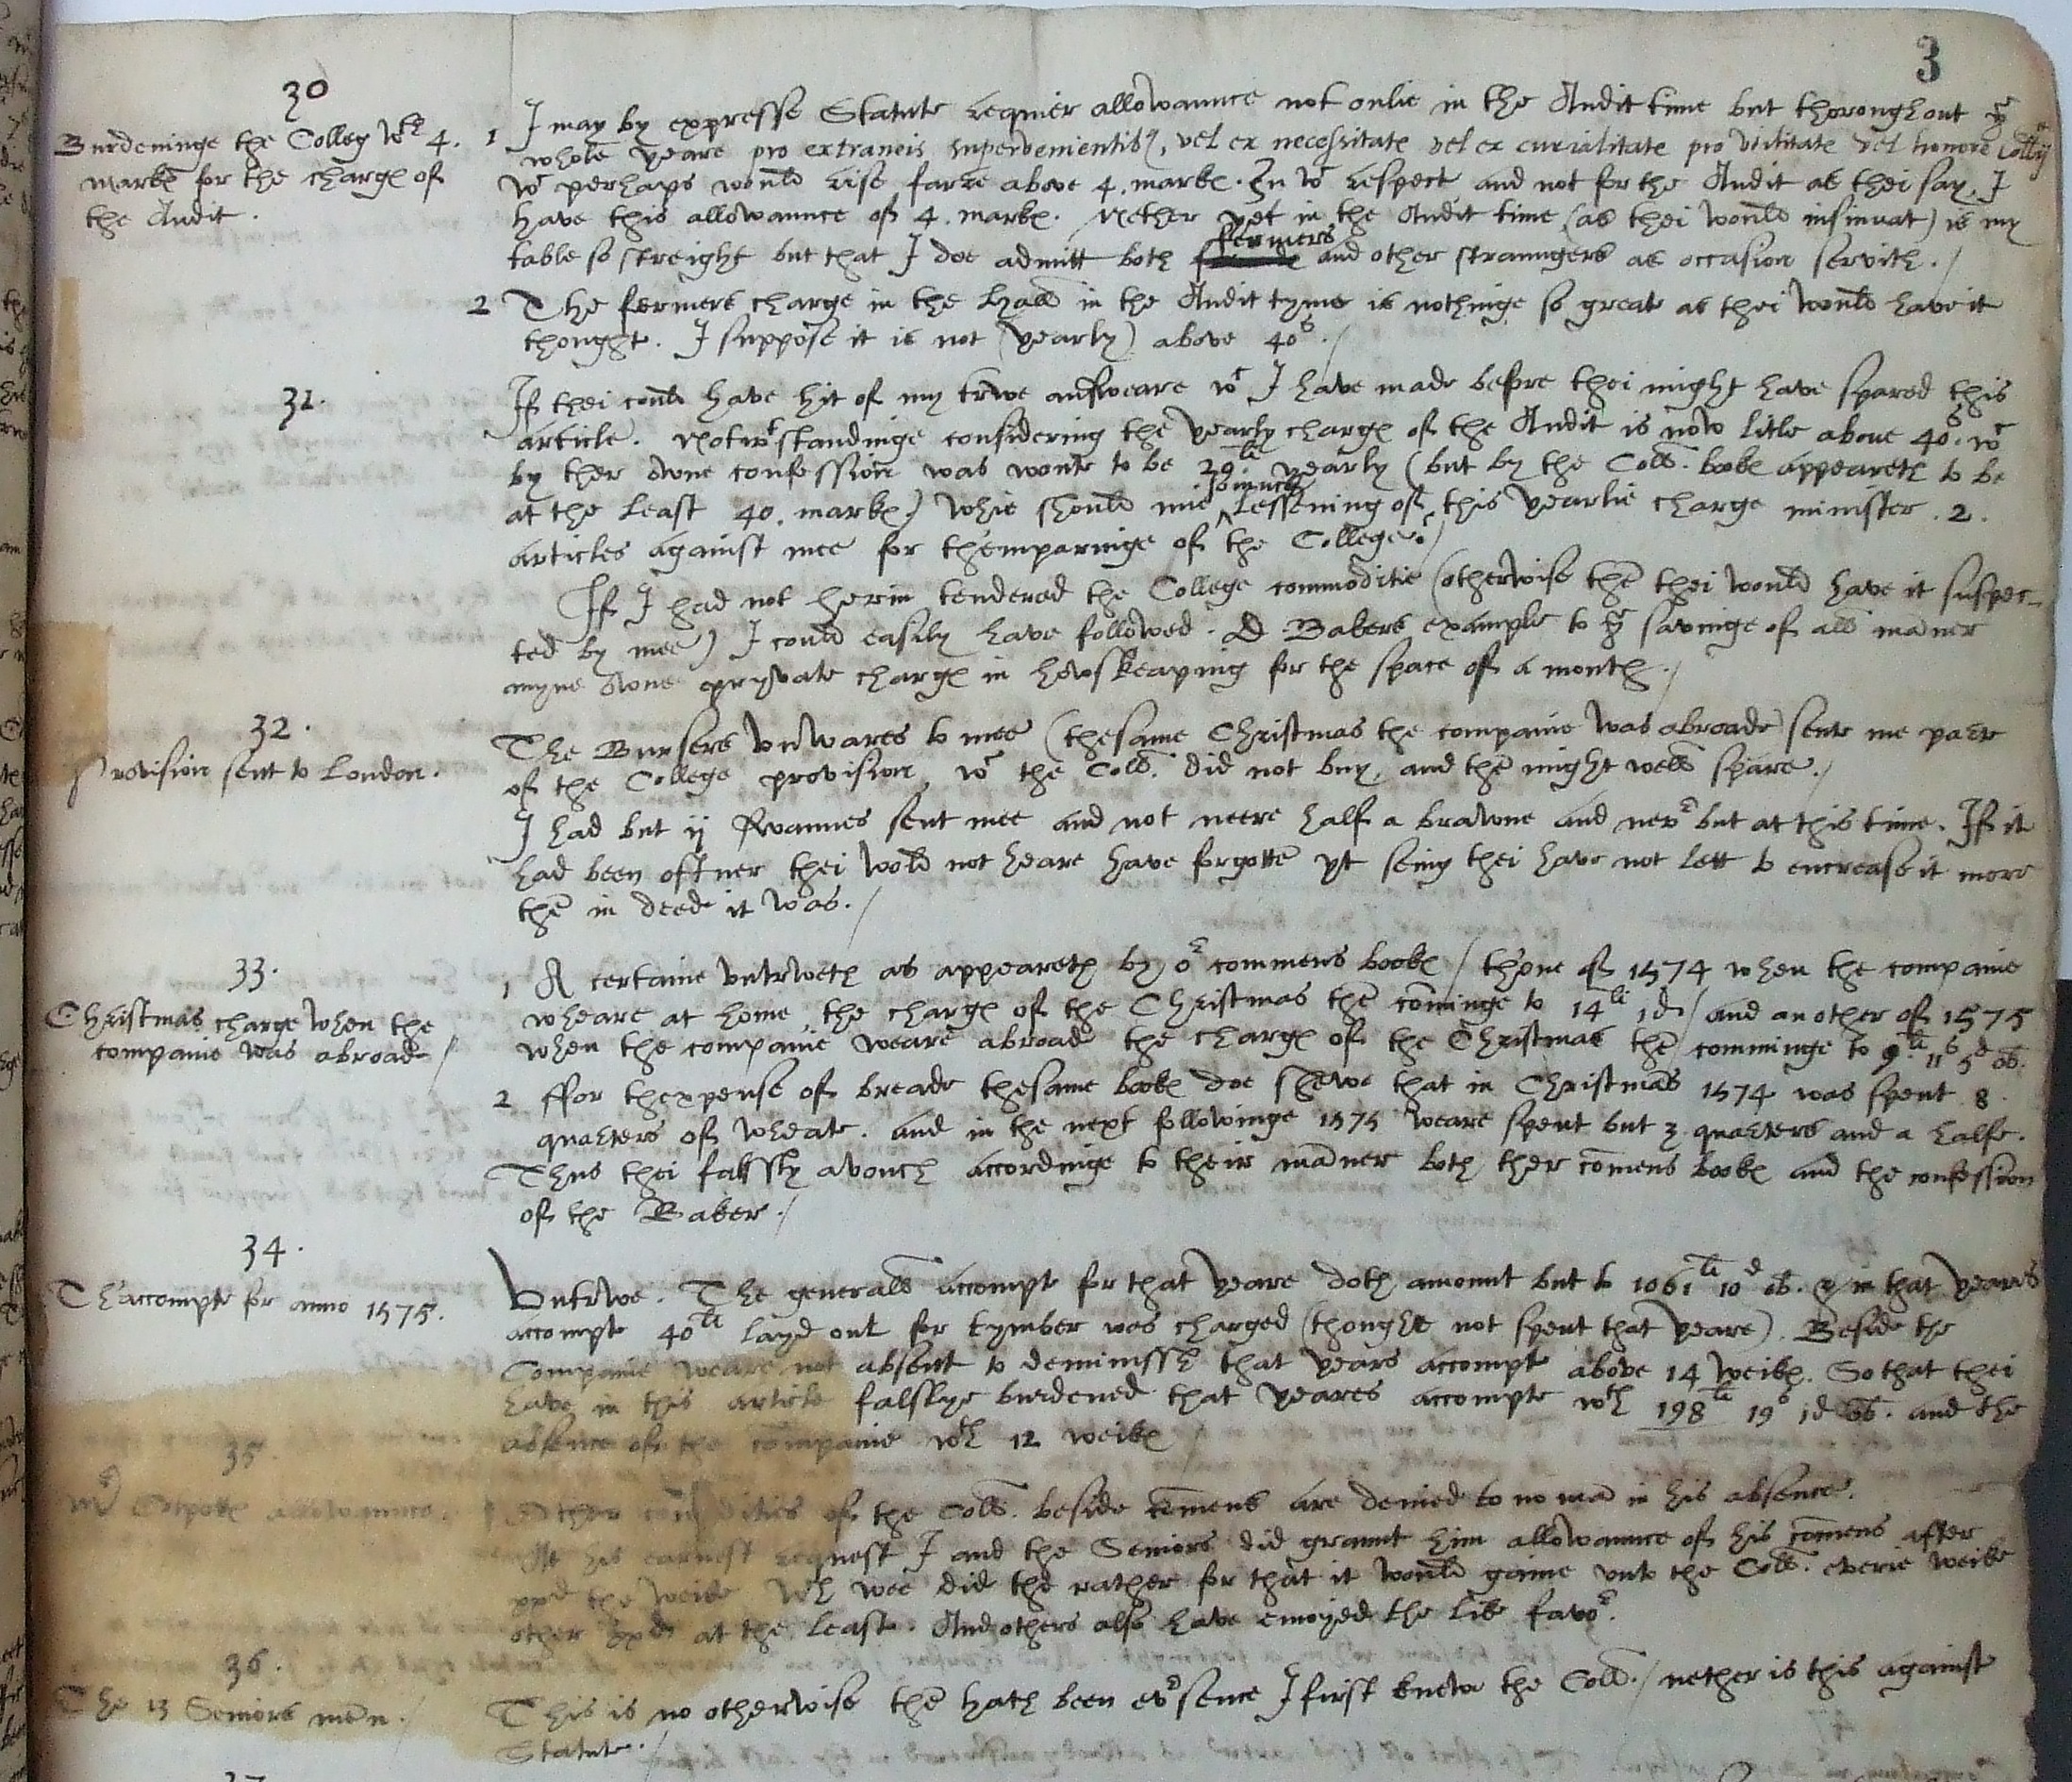 3
30
Burdeninge the Colleg wth 4.
markes for the charges of
the Audit.
1 I may by expresse Statute requier allowaunce not onlie in the Audit time but thoroughout ye
whole yeare pro extraneis supervenientibus, vel ex necessitate vel ex curialitate pro utilitate vel honore Collij
wc perhaps would rise farre above 4. markes. In wc respect and not for the Audit as thei say, I
have this allowaunce of 4. markes. Nether yet in the Audit time (as thei would insinuat) is my
table so streight but that I doe admitt both fermers and other straungers as occasion servith./
2 The fermers charge in the hall in the Audit tyme is nothinge so great as thei would have it
thought. I suppose it is not (yearly) above 40s./
31.
If thei could have hit of my trwe answeare wc I have made before thei might have spared this
article. Notwtstandinge considering the yearly charges of the Audit is now litle above 40s. wc
by ther owne confession was wonte to be 29li yearly (but by the Coll. bookes appeareth to be
at the least 40. markes) whie should mie so much lessening of this yearlie charge minister .2.
articles against mee for themparinge of the College?/
If I had not herin tendered the College commoditie (otherwise then thei would have it suspec-
ted by mee) I could easily have followed D. Bakers example to ye savinge of all maner
myne owne pryvate charges in howskeaping for the space of a month./
32.
Provision sent to London.
The Bursers unwares to mee (thesame Christmas the companie was abroade) sente me parte
of the College provision wc the Coll. did not buy, and then might well spare./
I had but ij swannes sent mee and not neere half a brawne and never but at this time. If it
had been oftner thei wold not heare have forgotten yt seing thei have not lett to encrease it more
then in deede it was./
33.
Christmas charge when the
companie was abroade/
1 A certaine untrweth as appeareth by or commens bookes / thone of 1574 when the companie
wheare at home, the charges of the Christmas then cominge to 14li 1d / and an other of 1575
when the companie weare abroad the charges of the Christmas then comminge to 9li 11s 5d ob.
2 ffor thexpense of breade thesame bookes doe shewe that in Christmas 1574 was spent 8.
quarters of wheate. and in the next followinge 1575 weare spent but 3 quarters and a halfe.
Thus thei falssly avouch accordinge to their maner both ther comens bookes and the confession
of the Baker./
34.
Th'accompte for anno 1575.
Untrwe. The generall accompte for that yeare doth amount but to 1061li 10d ob. & in that yeares
accompte 40li layd out for tymber was charged (thoughe not spent that yeare). Beside the
Companie weare not absent to deminissh that years accompte above 14 weikes. So that thei
have in this article falslye burdened that yeares accompte wth 198li 19s 1d ob. and the
absence of the companie wth 12 weikes
35.
allowaunce.
1 Other comodities of the Coll. beside comens are denied to no man in his absence.
At his earnest request I and the Seniors did graunt him allowaunce of his comens after
xxd the weike wch wee did the rather for that it would gaine unto the Coll. everie weike
other xxd at the least. And others also have enioyed the like favor.
36.
The 13 Seniors men./
This is no otherwise then hath been ever sence I first knew the Coll./ nether is this against
Statute./
37